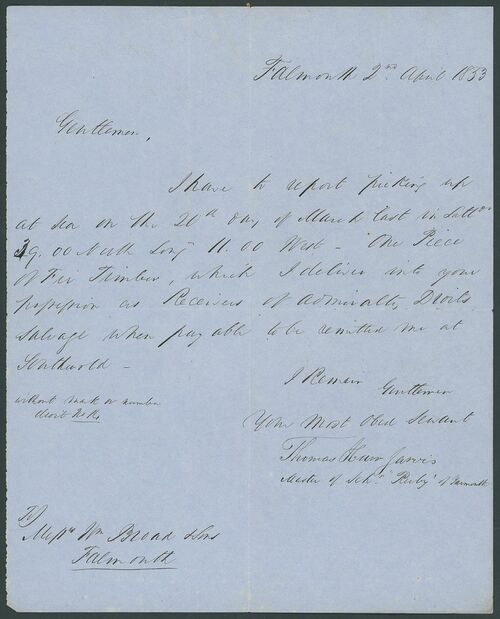 Falmouth 2nd April 1853
Gentlemen,
I have to report picking up
at sea on the 20th day of March last in Lattde
39.00 North Long 11.00 West - One Piece
of Fir Timber, which I deliver into your
possession as Receivers of Admiralty Droits
Salvage when payable to be remitted me at
Southwold -
I Remain Gentlemen
without mark or number
Droit No
Your Most Obed Servant
Thomas Jarvis
Master of Schr "Ruby" of Yarmouth
To
Messrs Wm Broad & Sons
Falmouth